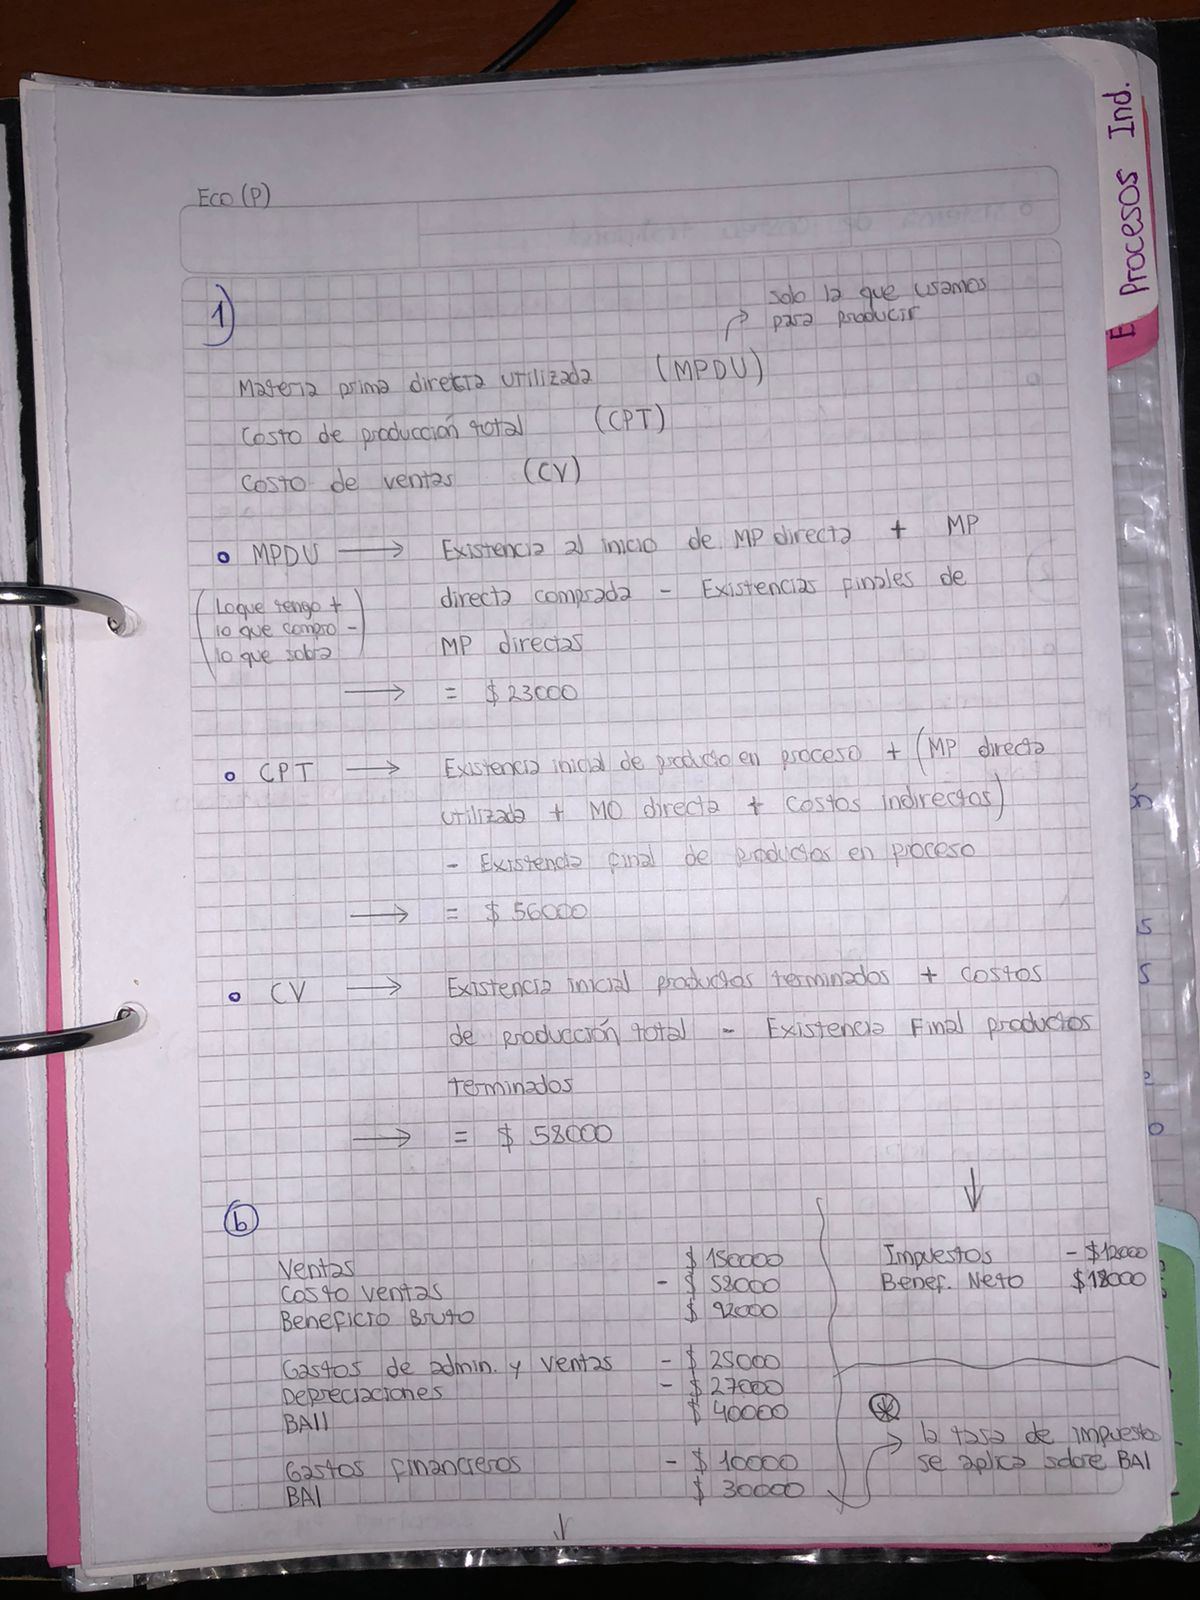 Procesos Ind.
E
Eco (P)
1)
solo la que usamos
para producir
Materia prima directa utilizada (MPDU)
Costo de producción total (CPT)
Costo de ventas (CV)
MPDU → Existencia al inicio de MP directa + MP
directa comprada - Existencias finales de
MP directas
(Lo que tengo +
lo que compro -
lo que sobra)
→ = $ 23000
CPT → Existencia inicial de producto en proceso + (MP directa
utilizada + MO directa + costos indirectos)
- Existencia final de productos en proceso
→ = $ 56000
CV → Existencia inicial productos terminados + costos
de producción total - Existencia Final productos
terminados
→ = $ 58000
b
Ventas $ 150000
Costo ventas - $ 58000
Beneficio Bruto $ 92000
Gastos de admin. y ventas - $ 25000
Depreciaciones - $ 27000
BAII $ 40000
Gastos financieros - $ 10000
BAI $ 30000
↓
↓
Impuestos - $12000
Benef. Neto $18000
→ la tasa de impuesto
se aplica sobre BAI